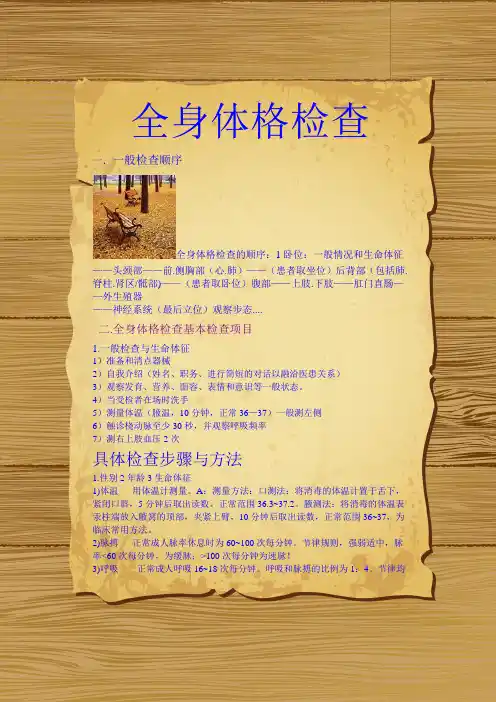 全身体格检查
一. 一般检查顺序
全身体格检查的顺序：1卧位：一般情况和生命体征
——头颈部——前.侧胸部（心.肺）——（患者取坐位）后背部（包括肺.
脊柱.肾区/骶部)——（患者取卧位）腹部——上肢.下肢——肛门直肠—
—外生殖器
——神经系统（最后立位）观察步态....
二.全身体格检查基本检查项目
1.一般检查与生命体征
1）准备和清点器械
2）自我介绍（姓名、职务、进行简短的对话以融洽医患关系）
3）观察发育、营养、面容、表情和意识等一般状态。
4）当受检者在场时洗手
5）测量体温（腋温，10分钟，正常36—37）一般测左侧
6）触诊桡动脉至少30秒，并观察呼吸频率
7）测右上肢血压2次
具体检查步骤与方法
1.性别2年龄3生命体征
1)体温 用体温计测量。A：测量方法：口测法：将消毒的体温计置于舌下，
紧闭口唇，5分钟后取出读数。正常范围36.3~37.2。腋测法：将消毒的体温表
汞柱端放入腋窝的顶部，夹紧上臂，10分钟后取出读数，正常范围36~37，为
临床常用方法。
2)脉搏 正常成人脉率休息时为60~100次每分钟。节律规则，强弱适中，脉
率<60次每分钟，为缓脉；>100次每分钟为速脉！
3)呼吸 正常成人呼吸16~18次每分钟。呼吸和脉搏的比例为1：4。节律均